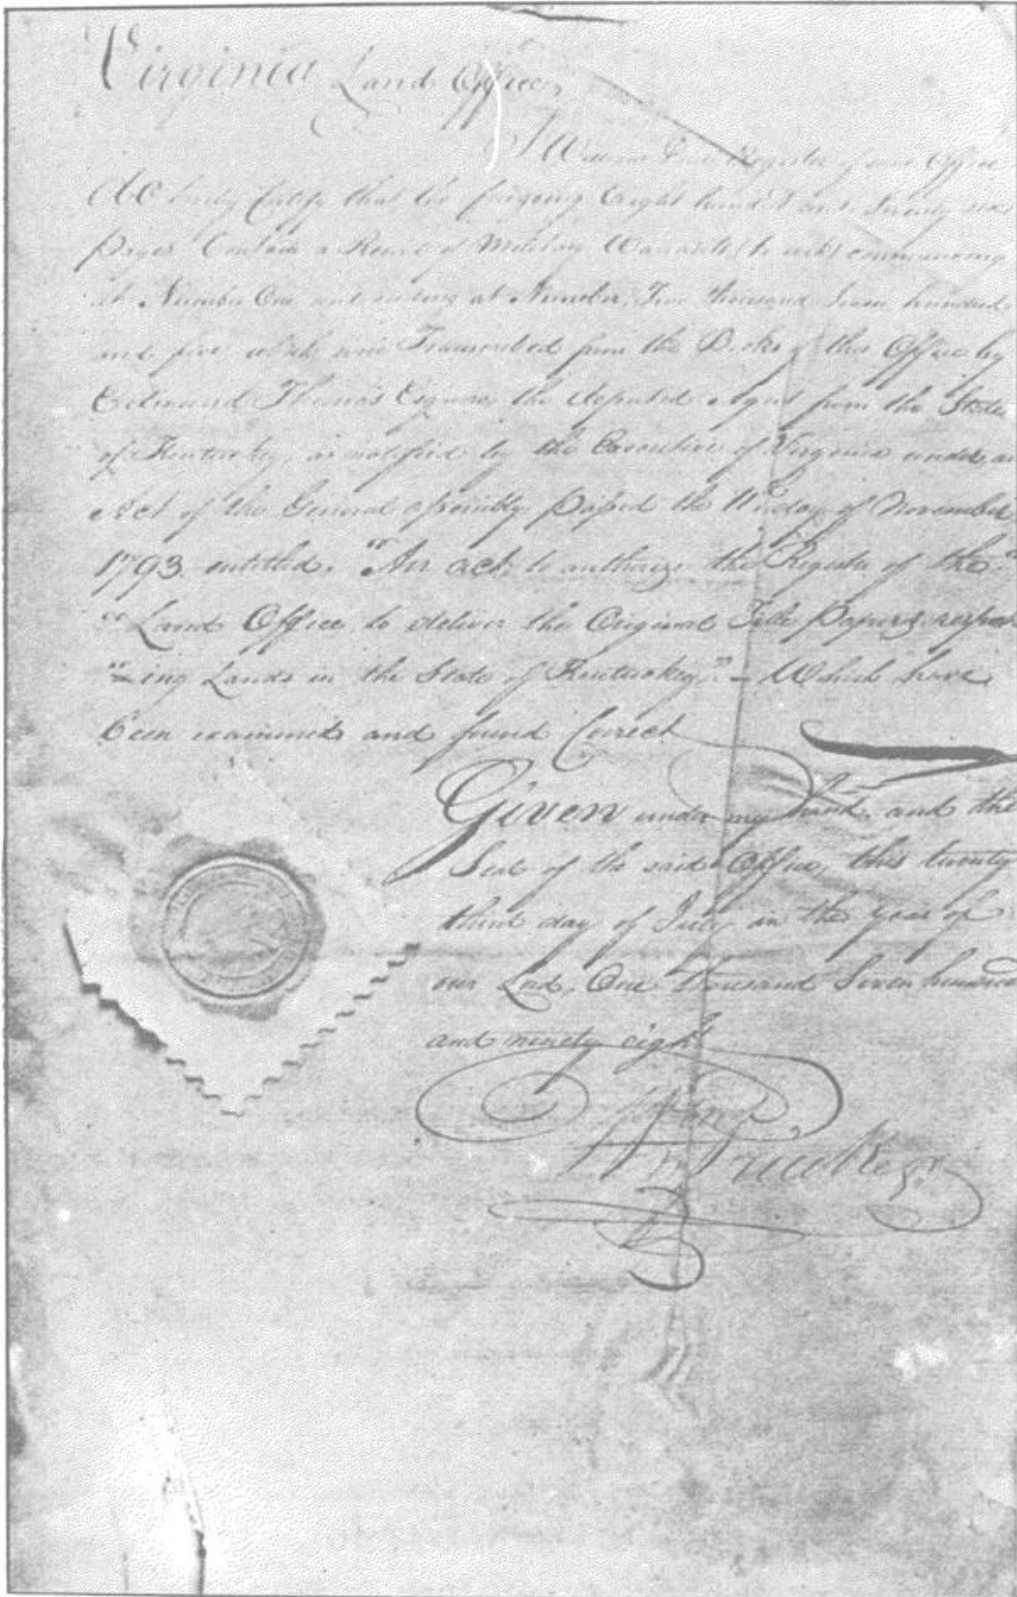 Virginia Land Office,
I William Price Register of said Office
do hereby certify that the foregoing Eight hundred and Seventy six
pages Contain a Record of Military Warrants commencing
at Number One and ending at Number, Two thousand Seven hundred
and five which were Transcribed from the Books of this Office by
Edmund Thomas Esquire, the deputed Agent from the State
of Kentucky as notified by the Executive of Virginia under an
Act of the General assembly passed the 11th day of November
1793. entitled. "An act, to authorize the Register of the"
"Land Office, to deliver the Original Title Papers respect
"ing Lands in the State of Kentucky." – Which have
been examined and found Correct
Given under my hand, and the
Seal of the said Office, this twenty
third day of July in the year of
our Lord, One thousand Seven hundred
and ninety eight
Price Regr